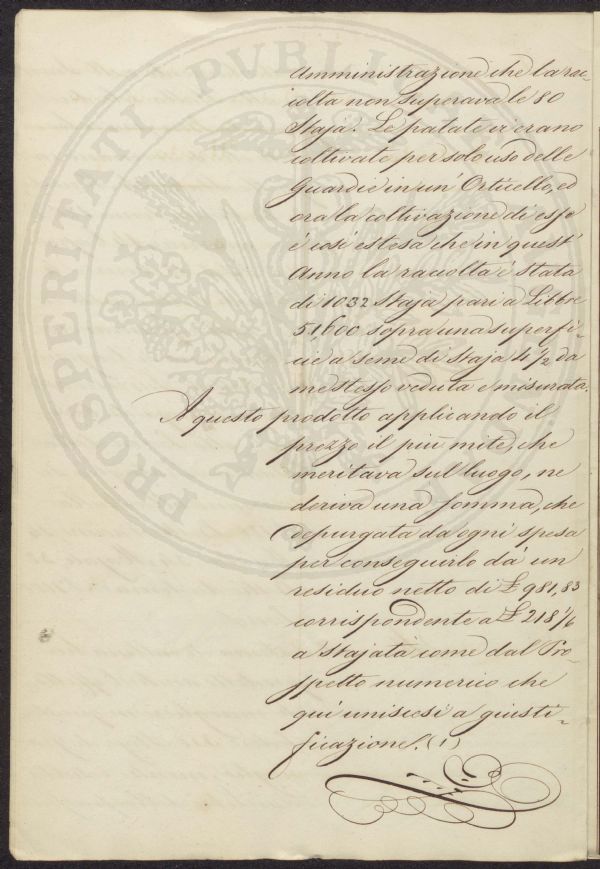 PROSPERITATI PVBLICAE
amministrazione che la rac-
colta non superava le 80
Staja. Le patate vi erano
coltivate per solo uso delle
Guardie in un' Orticello, ed
ora la coltivazione di esse
è così estesa che in quest'
Anno la raccolta è stata
di 1032 Staja pari a Libbre
51,600 sopra una superfi-
cie a seme di Staja 4 1/2 da
me stesso veduta e misurata.
A questo prodotto applicando il
prezzo il più mite, che
meritava sul luogo, ne
deriva una somma, che
depurgata da ogni spesa
per conseguirlo dà un
residuo netto di £ 981,83
corrispondente a £ 218 1/6
a Stajata come dal Pro-
spetto numerico che
quì unisesi a giusti-
ficazione. (1)